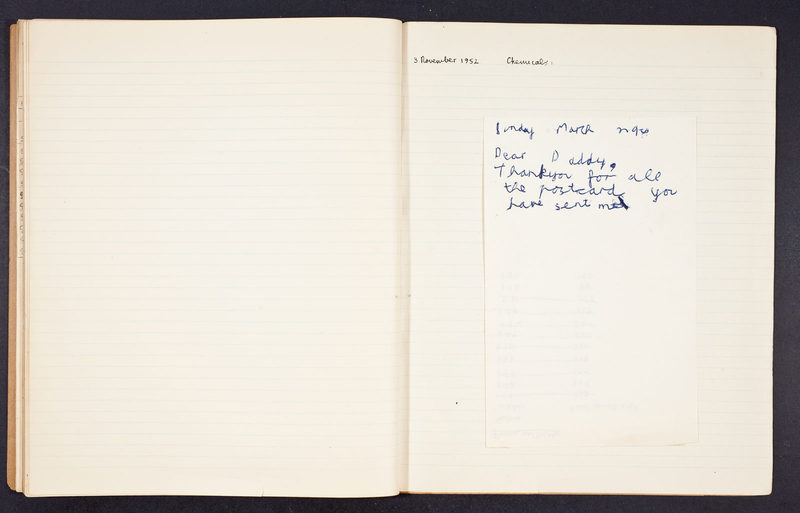 3 November 1952 Chemicals:
Sunday March
Dear Daddy,
Thankyou for all
the postcards you
have sent me